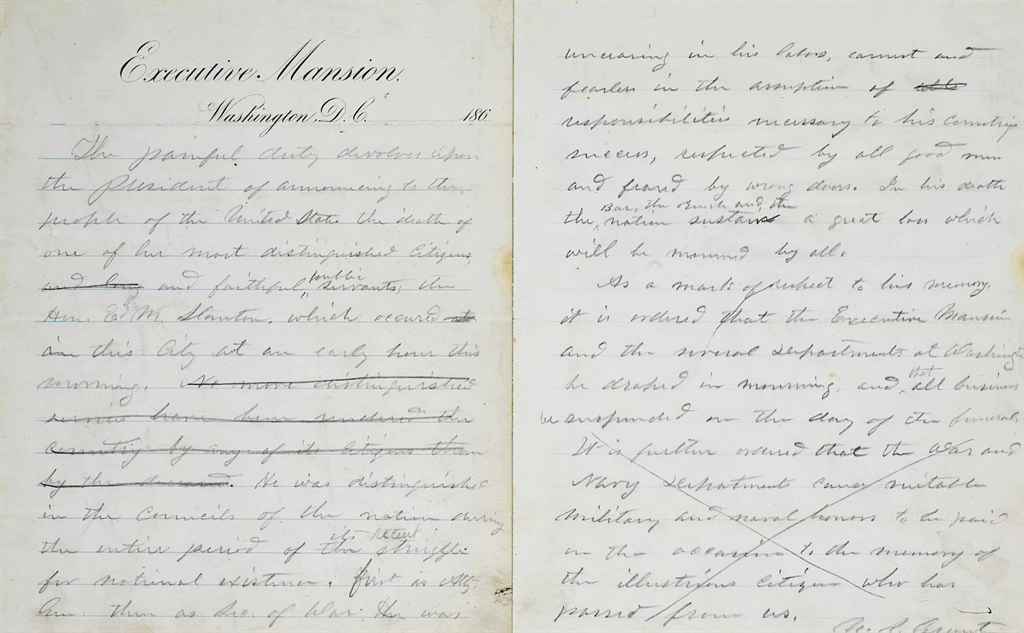 Executive Mansion.
Washington, D.C. 186
The painful duty devolves upon
the President of announcing to the
people of the United States the death of
one of her most distinguished Citizens
and faithful public servants, the
Hon. E. M. Stanton, which occured
in this City at an early hour this
morning. No more distinguished
services have been rendered the
country by any of its citizens than
by the deceased. He was distinguished
in the Councils of the nation during
the entire period of its recent struggle
for national existence. first as Atty.
Gen. then as Sec. of War. He was
unwearing in his labors, earnest and
fearless in the assumption of
responsibilities necessary to his country's
success, respected by all good men
and feared by wrong doers. In his death
the Bar, the Bench and the nation sustains a great loss which
will be mourned by all.
As a mark of respect to his memory
it is ordered that the Executive Mansion
and the several Departments at Washington
be draped in mourning, and that all business
be suspended on the day of the funeral.
It is further ordered that the War and
Navy Departments cause suitable
Military and naval honors to be paid
on the occasion to the memory of
the illustrious Citizen who has
passed from us.
U. S. Grant